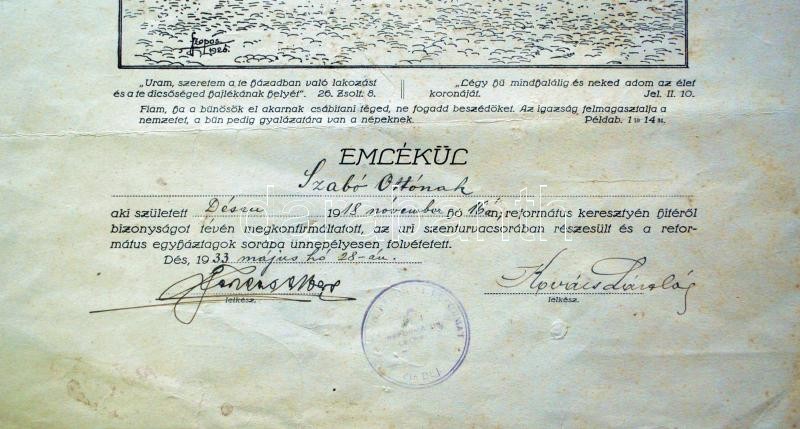 1926.
„Uram, szeretem a te házadban való lakozást
és a te dicsőséged hajlékának helyét". 26. Zsolt. 8.
„Légy hű mindhalálig és neked adom az élet
koronáját. Jel. II. 10.
Fiam, ha a bűnösök el akarnak csábítani téged, ne fogadd beszédöket. Az igazság felmagasztalja a
nemzetet, a bűn pedig gyalázatára van a népeknek. Példab. 1 10 14 34.
EMLÉKÜL
Szabó Ottónak
aki született Désen 1918 november hó 16 án, református keresztyén hitéről
bizonyságot tevén megkonfirmáltatott, az úri szentvacsorában részesült és a refor-
mátus egyháztagok sorába ünnepélyesen fölvétetett.
Dés, 1933 május hó 28-án.
Kovács László
lelkész. lelkész.
darabanth